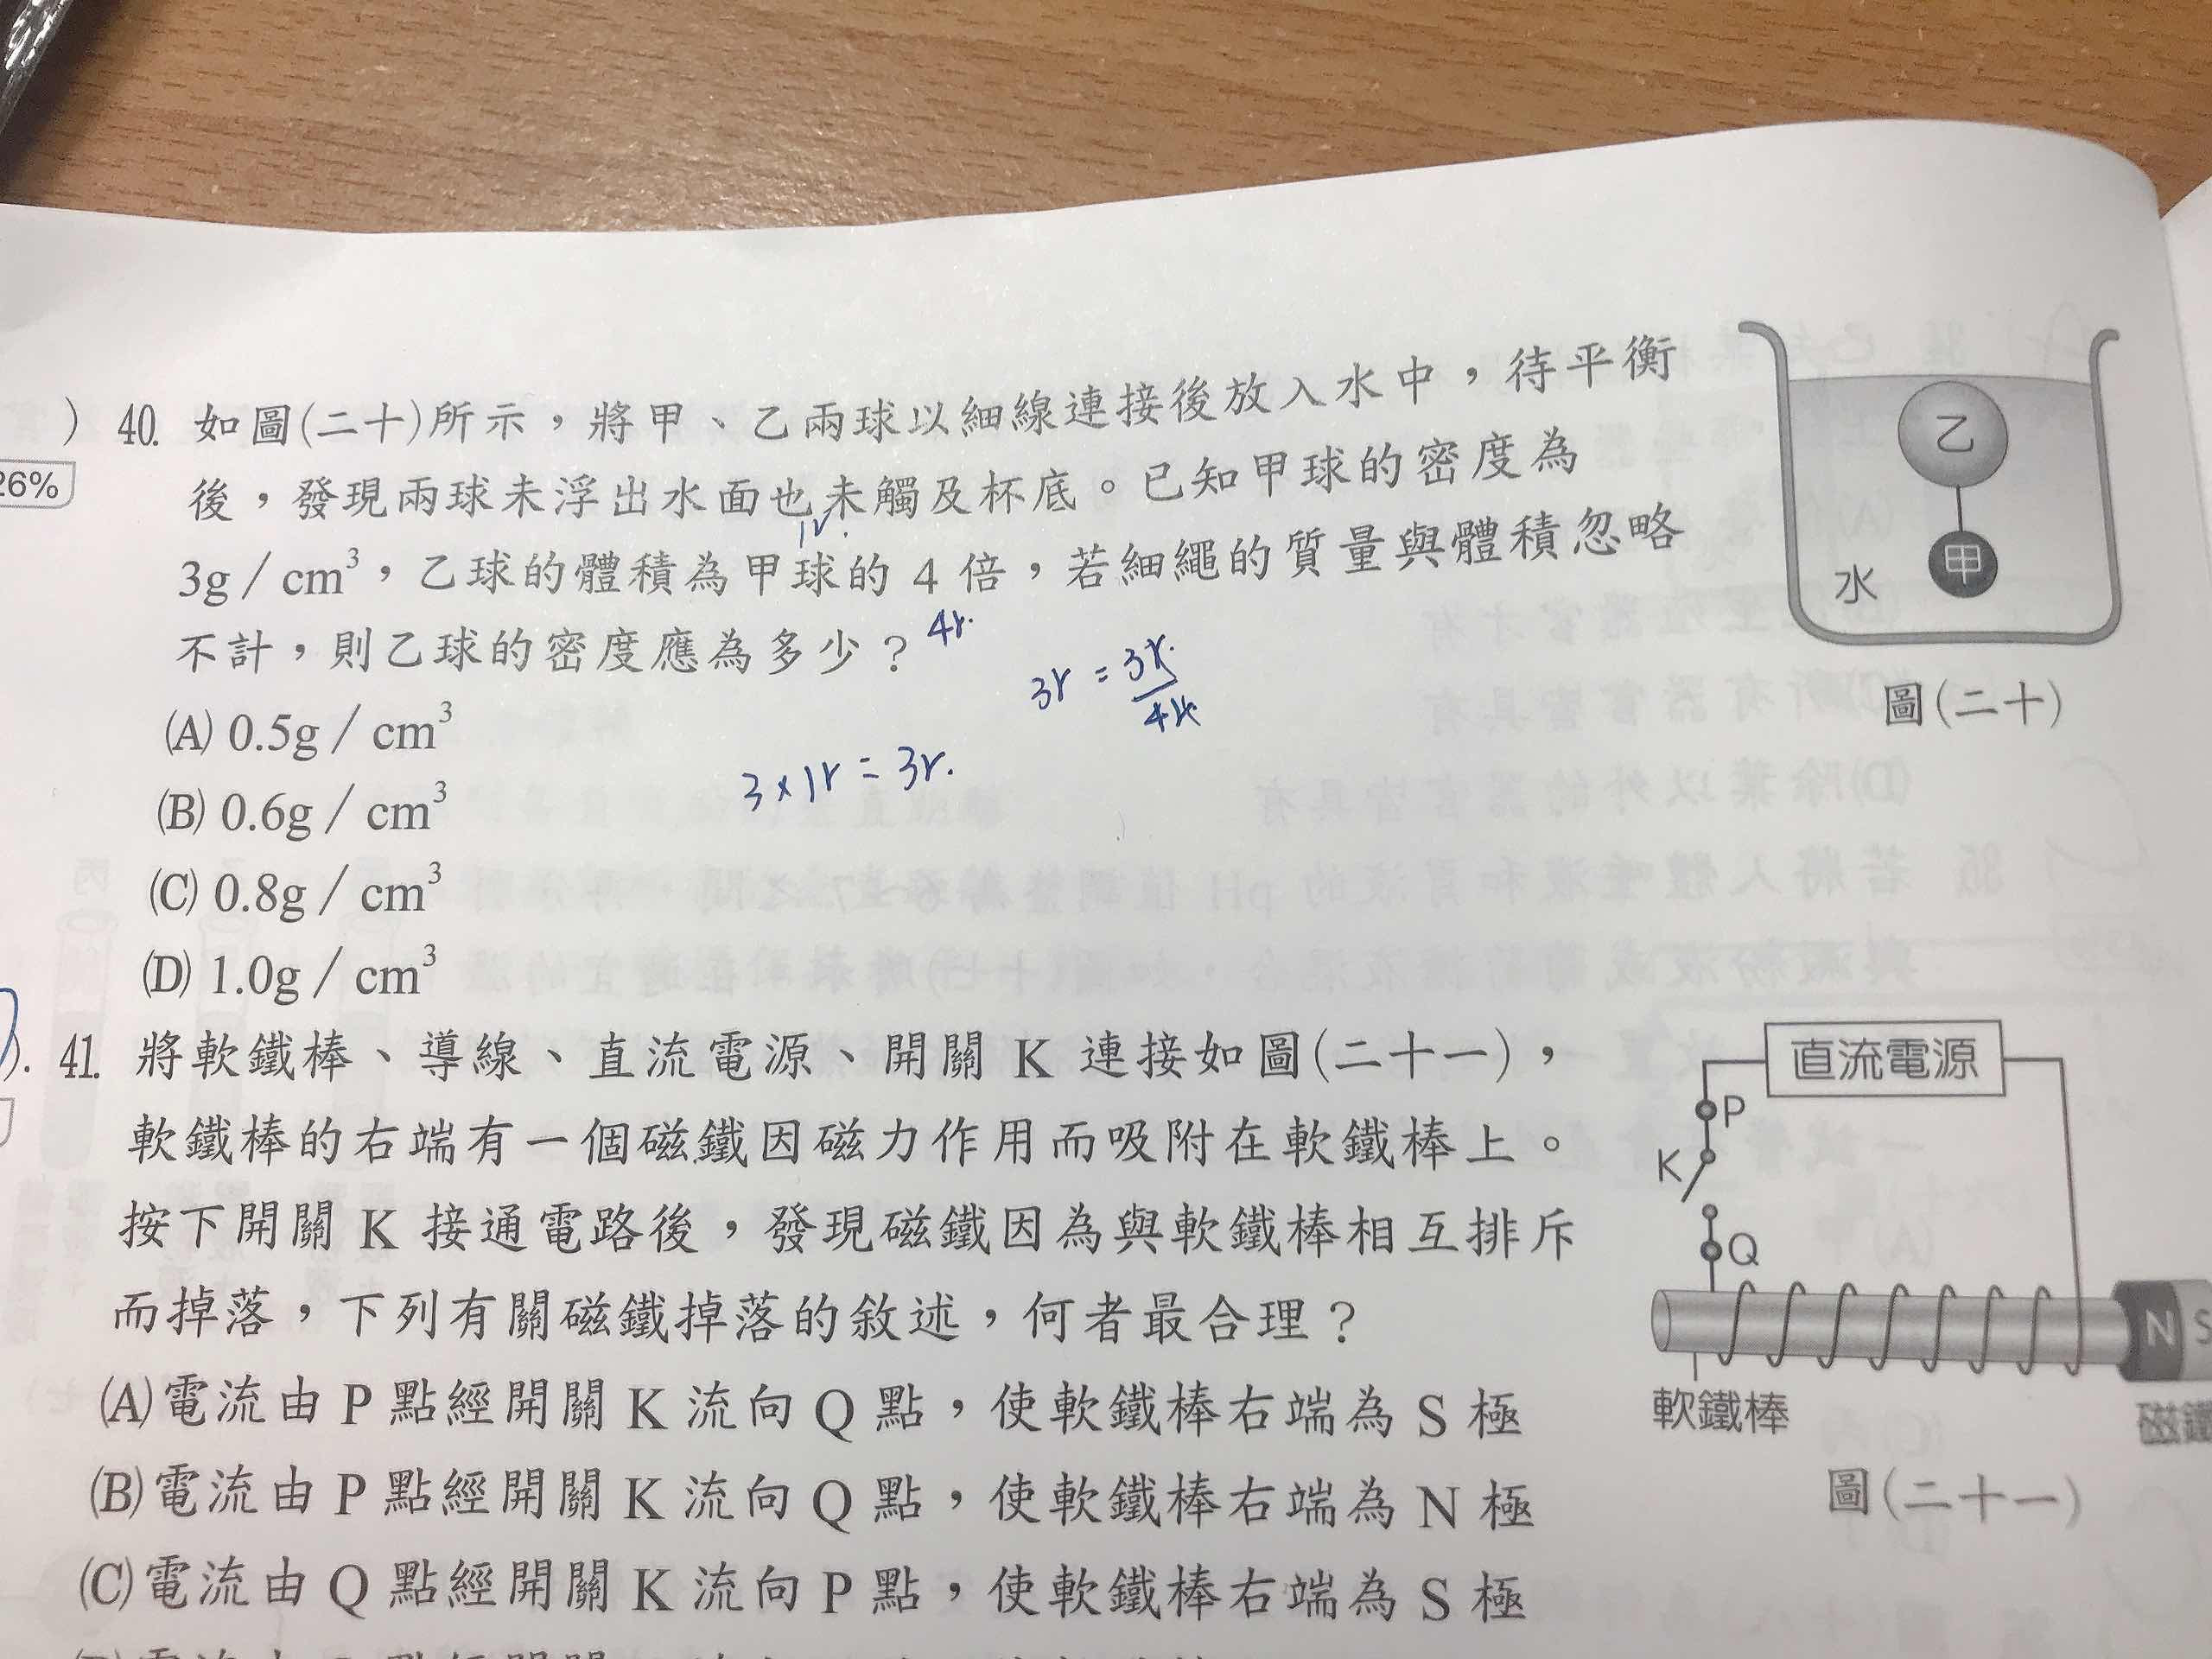 ) 40. 如圖(二十)所示，將甲、乙兩球以細線連接後放入水中，待平衡
26%
後，發現兩球未浮出水面也未觸及杯底。已知甲球的密度為
1r.
3g／cm³，乙球的體積為甲球的 4 倍，若細繩的質量與體積忽略
不計，則乙球的密度應為多少？
4r.
3r = 3r/4r
3 × 1r = 3r.
(A) 0.5g／cm³
(B) 0.6g／cm³
(C) 0.8g／cm³
(D) 1.0g／cm³
乙
甲
水
圖(二十)
41. 將軟鐵棒、導線、直流電源、開關 K 連接如圖(二十一)，
軟鐵棒的右端有一個磁鐵因磁力作用而吸附在軟鐵棒上。
按下開關 K 接通電路後，發現磁鐵因為與軟鐵棒相互排斥
而掉落，下列有關磁鐵掉落的敘述，何者最合理？
(A)電流由 P 點經開關 K 流向 Q 點，使軟鐵棒右端為 S 極
(B)電流由 P 點經開關 K 流向 Q 點，使軟鐵棒右端為 N 極
(C)電流由 Q 點經開關 K 流向 P 點，使軟鐵棒右端為 S 極
直流電源
P
K
Q
N S
軟鐵棒
磁鐵
圖(二十一)